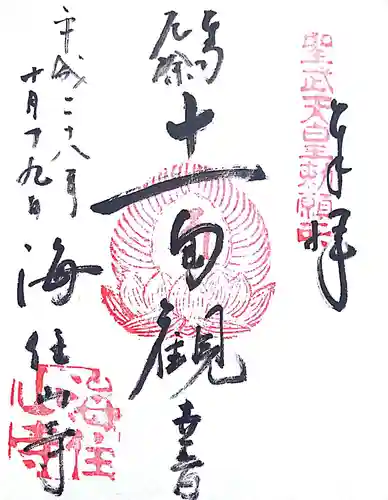 奉拝
聖武天皇勅願
厄除
十一面観音
平成二十八年
十月十九日
海住山寺
海住山寺